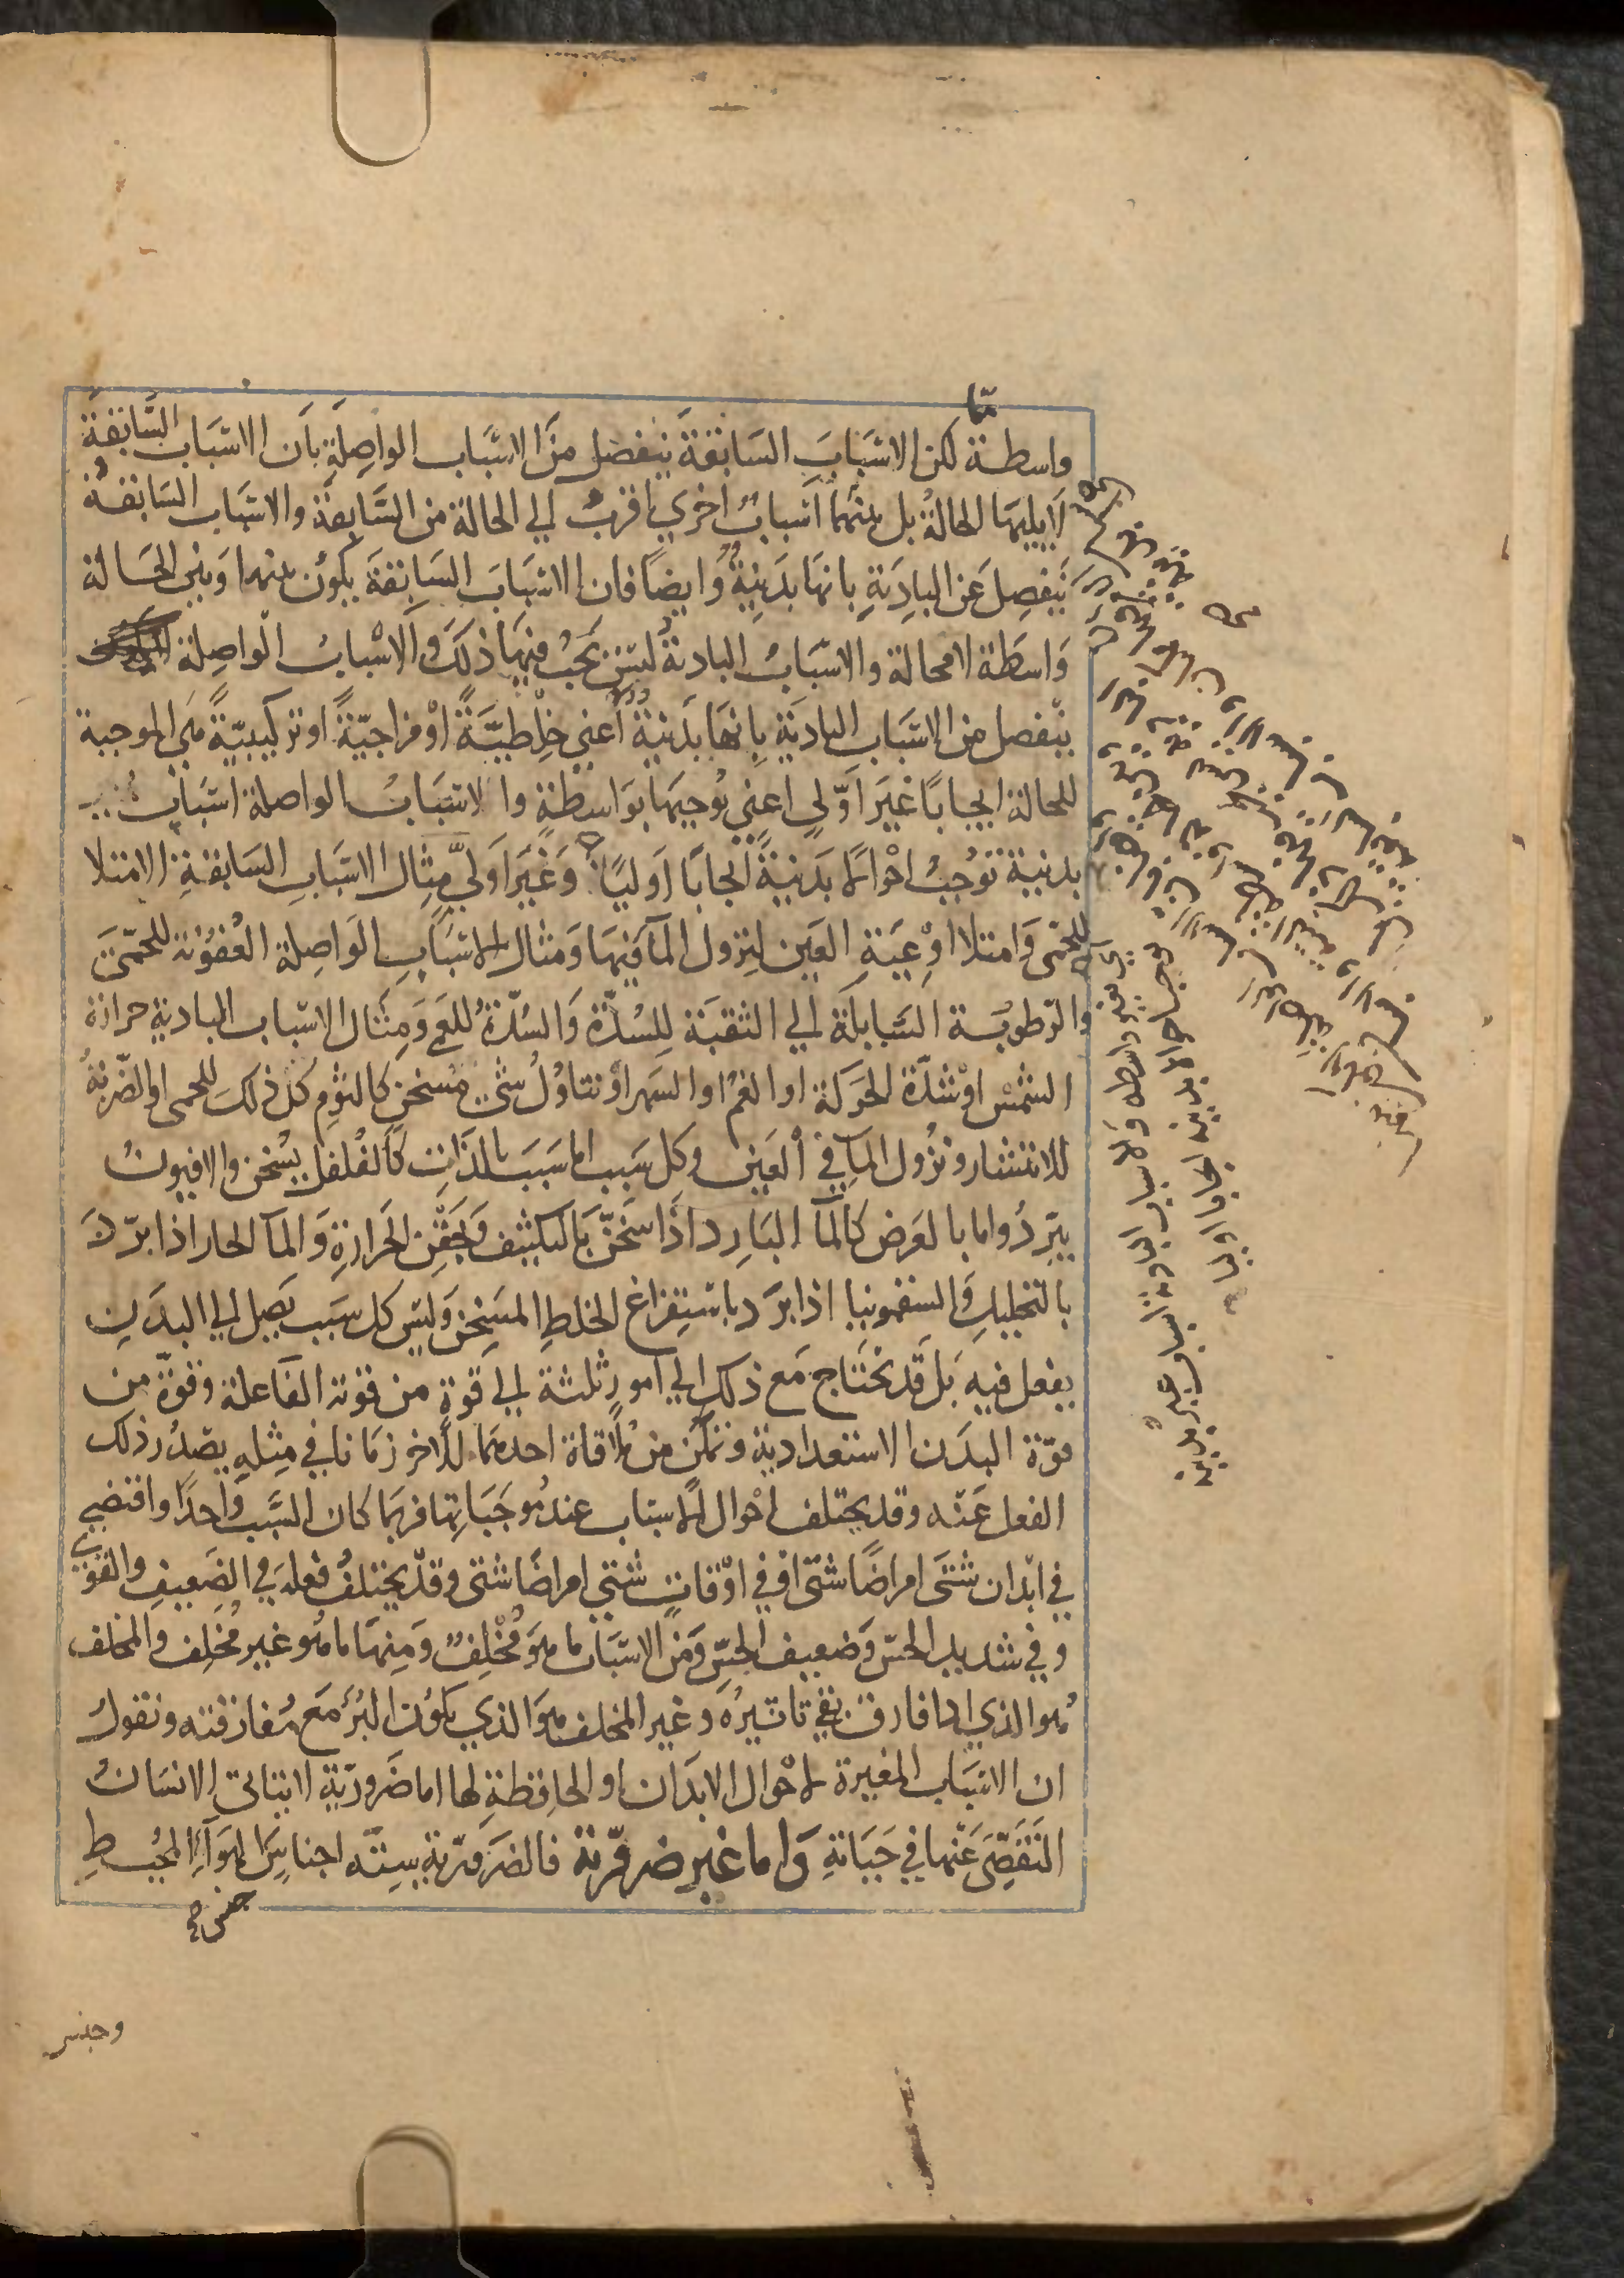 ما
واسطة لكن الاسباب السابقة ينفصل من الاسباب الواصلة بان الاسباب السابقة
لا يليها الحالة بل بينهما اسباب اخري اقرب الي الحالة من السابقة والاسباب السابقة
ينفصل عن البادية بانها بدنية وايضا فان الاسباب السابقة يكون بينها وبين الحالة
واسطة لا محالة والاسباب البادية ليس يجب فيها ذلك والاسباب الواصلة
ينفصل من الاسباب البادية بانها بدنية اعني خلطية او مزاجية او تركيبية هي الموجبة
للحالة ايجابا غير اولي اعني توجبها بواسطة والاسباب الواصلة اسباب
بدنية توجب احوالا بدنية ايجابا اوليا وغير اولي مثال الاسباب السابقة الامتلا
للحمى وامتلا اوعية العين لنزول المآ فيها ومثال الاسباب الواصلة العفونة للحمى
والرطوبة السايلة الي الثقبة للسدة والسدة للعمى ومثال الاسباب البادية حرارة
الشمس او شدة الحركة او الغم او السهر او تناول شئ مسخن كالثوم كل ذلك للحمى او الضربة
للانتشار ونزول المآ في العين وكل سبب اما سبب بالذات كالفلفل يسخن والافيون
يبرد واما بالعرض كالمآ البارد اذا سخن بالتكثيف وبحقن الحرارة والمآ الحار اذا برد
بالتحليل والسقمونيا اذا برد باستفراغ الخلط المسخن وليس كل سبب يصل الي البدن
يفعل فيه بل قد يحتاج مع ذلك الي امور ثلثة الي قوة من قوته الفاعلة وقوة من
قوة البدن الاستعدادية وتمكن من ملاقاة احدهما للاخر زمانا في مثله يصدر ذلك
الفعل عنه وقد يختلف احوال الاسباب عند موجباتها فربما كان السبب واحدا واقتضي
في ابدان شتى امراضا شتى او في اوقات شتي امراضا شتى وقد يختلف فعله في الضعيف والقوي
وفي شديد الحس وضعيف الحس ومن الاسباب ما هو مخلف ومنها ما هو غير مخلف والمخلف
هو الذي اذا فارق بقي تاثيره وغير المخلف هو الذي يكون البرء مع مفارقته ونقول
ان الاسباب المغيرة لاحوال الابدان او الحافظة لها اما ضرورية لا يتاتى الانسان
التفصي عنها في حياته واما غير ضرورية فالضرورية ستة اجناس الهوآ المحيط
جنس
بغير واسطه والاسباب البادية اسباب غير بدنية
توجب احوالا بدنية ايجابا اوليا
وجنس